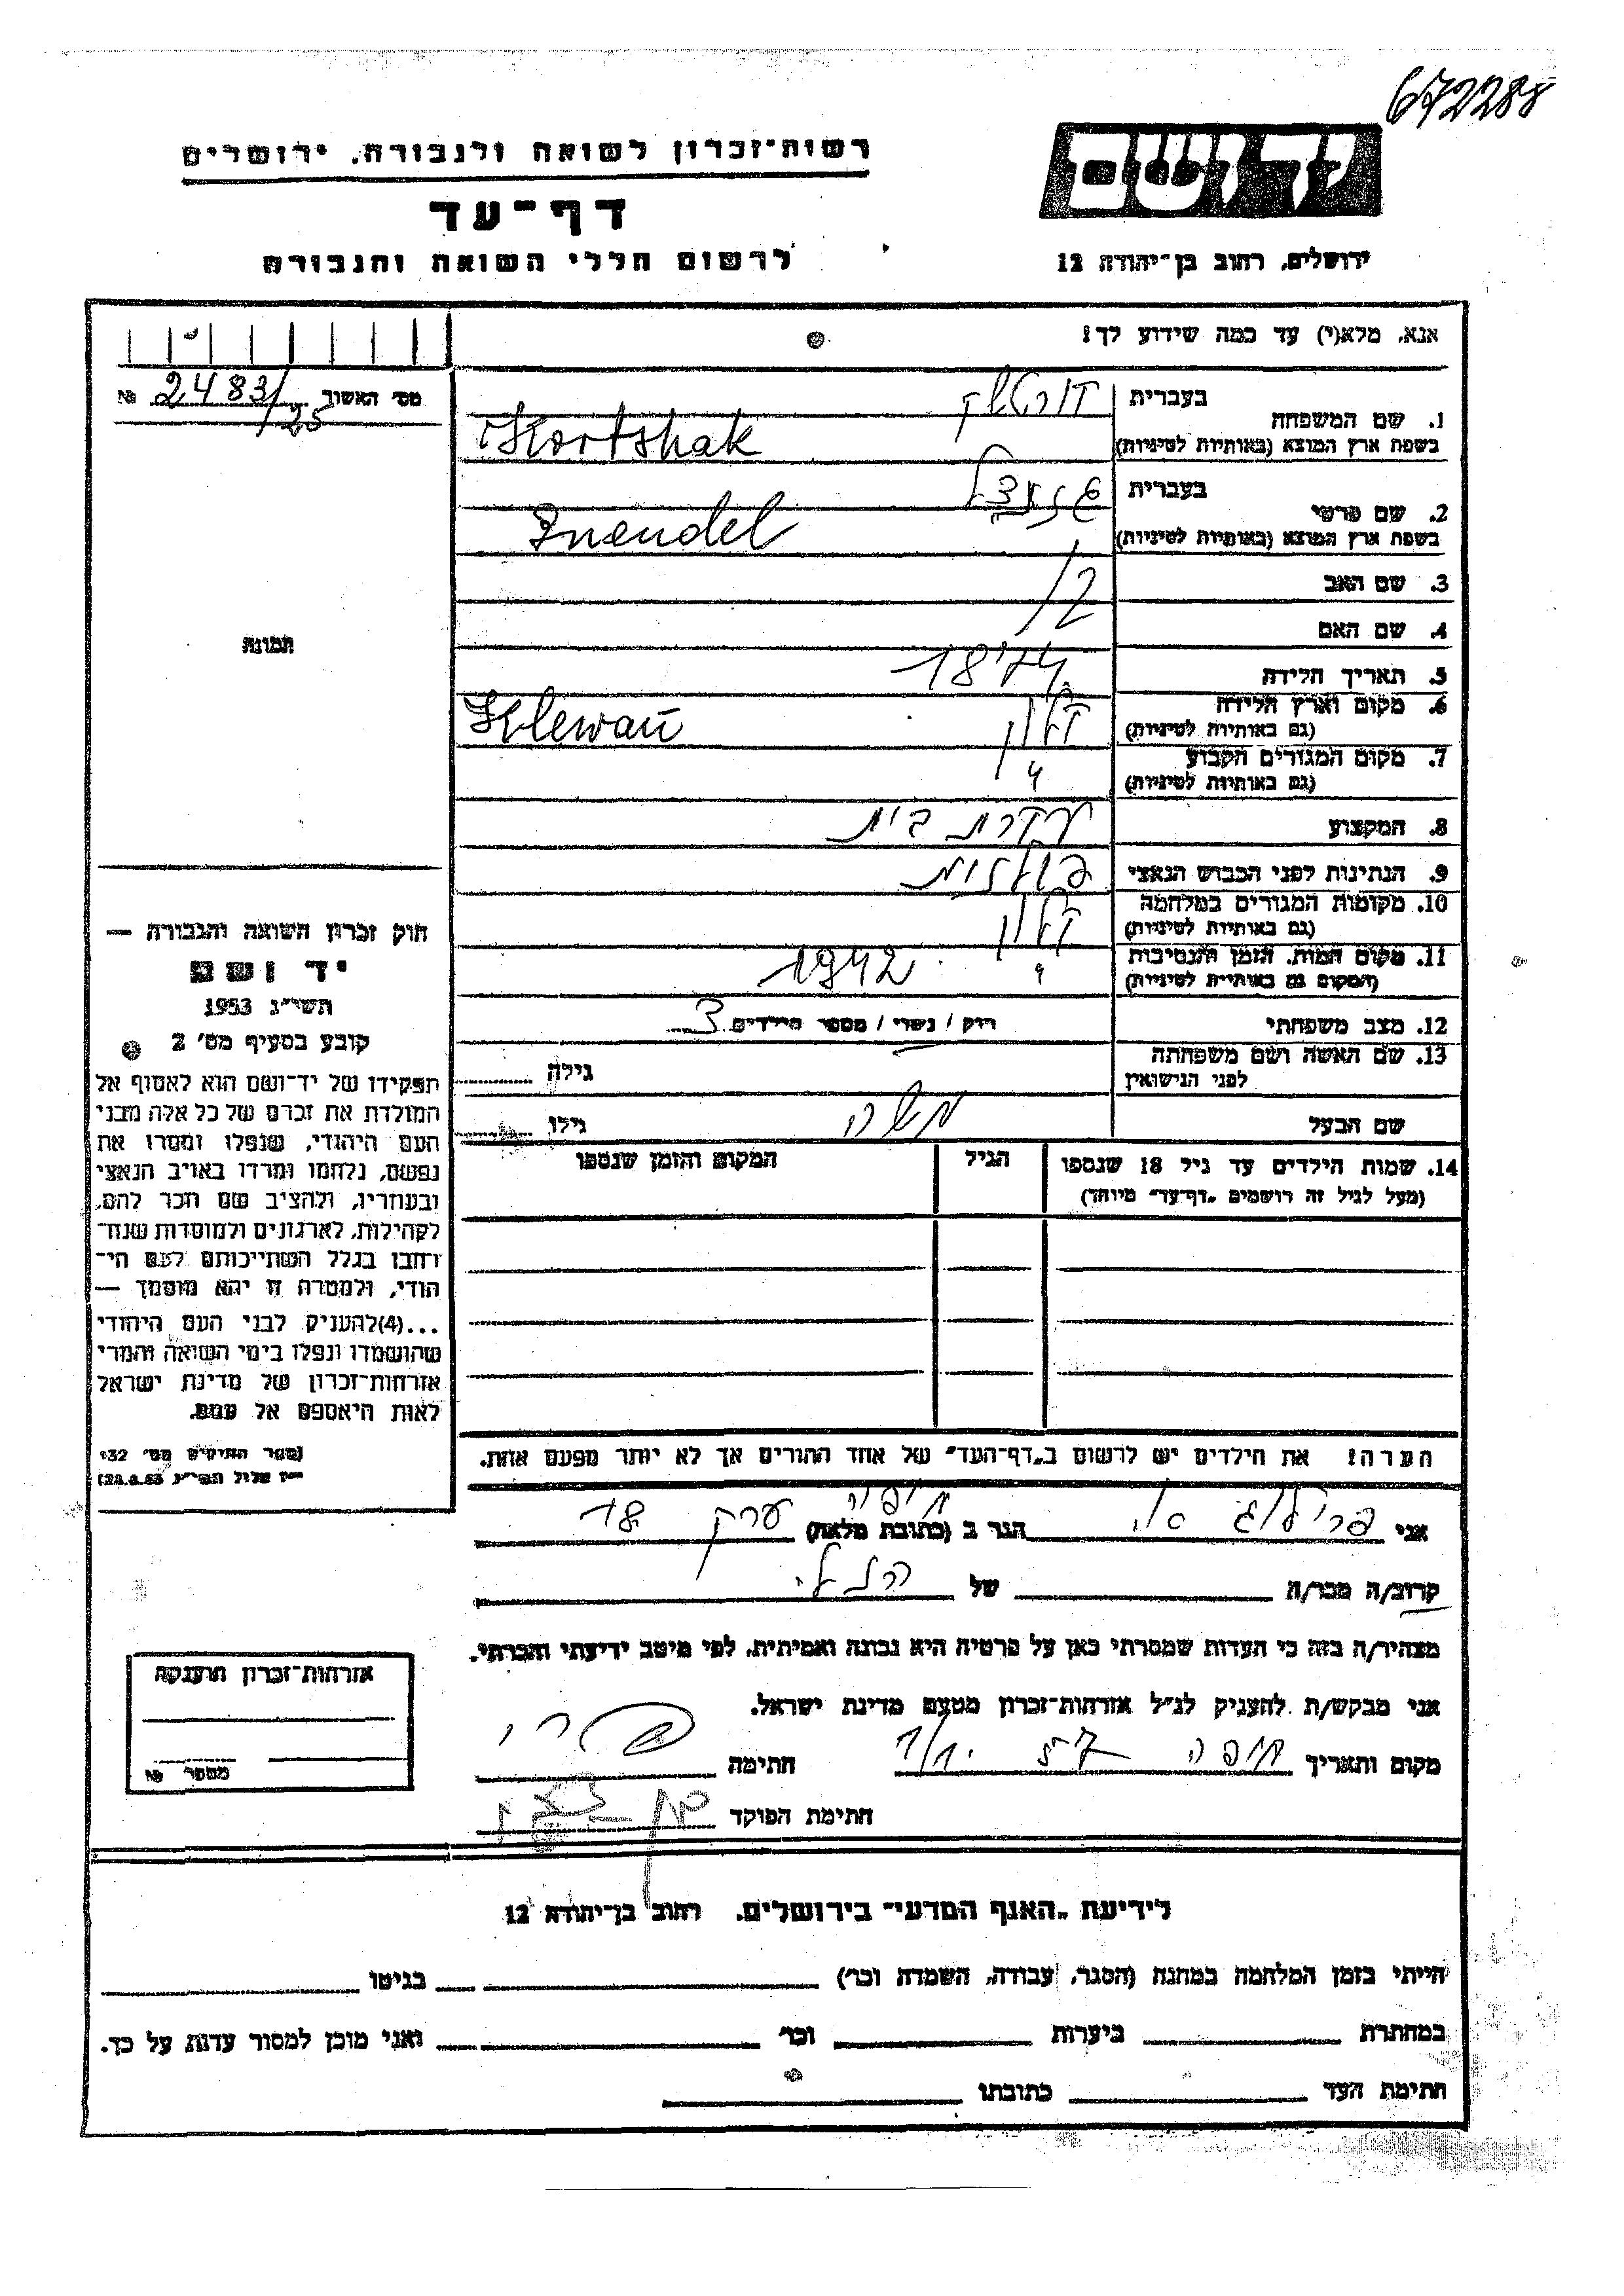 672288
רשות־זכרון לשואה ולגבורה, ירושלים
יד ושם
דף־עד
לרשום חללי השואה והגבורה
ירושלים, רחוב בן־יהודה 12
אנא, מלא(י) עד כמה שידוע לך!
מס' האשוך 2483/25 №
1. שם המשפחה
בעברית
בשפת ארץ המוצא (באותיות לטיניות) Kortshak
2. שם פרטי
בעברית
בשפת ארץ המוצא (באותיות לטיניות)
3. שם האב
4. שם האם
5. תאריך הלידה 1874
6. מקום וארץ הלידה
(גם באותיות לטיניות) Klewań
7. מקום המגורים הקבוע
(גם באותיות לטיניות)
8. המקצוע עקרת בית
9. הנתינות לפני הכבוש הנאצי פולנית
10. מקומות המגורים במלחמה
(גם באותיות לטיניות)
11. מקום המות, הזמן והנסיבות 1942
(המקום גם באותיות לטיניות)
12. מצב משפחתי רוק / נשוי / מספר הילדים 3
13. שם האשה ושם משפחתה
לפני הנישואין
גילה
שם הבעל משה גילו
14. שמות הילדים עד גיל 18 שנספו הגיל המקום והזמן שנספו
(מעל לגיל זה רושמים "דף־עד" מיוחד)
הערה! את הילדים יש לרשום ב"דף־העד" של אחד ההורים אך לא יותר מפעם אחת.
תמונה
חוק זכרון השואה והגבורה —
יד ושם
תשי"ג 1953
קובע בסעיף מס' 2
תפקידו של יד־ושם הוא לאסוף אל
המולדת את זכרם של כל אלה מבני
העם היהודי, שנפלו ומסרו את
נפשם, נלחמו ומרדו באויב הנאצי
ובעוזריו, ולהציב שם וזכר להם,
לקהילות, לארגונים ולמוסדות שנח־
רבו בגלל השתייכותם לעם הי־
הודי, ולמטרה זו יהא מוסמך —
...(4)להעניק לבני העם היהודי
שהושמדו ונפלו בימי השואה והמרי
אזרחות־זכרון של מדינת ישראל
לאות היאספם אל עמם.
(ספר החוקים מס' 132
י"ז אלול תשי"ג 28.8.53)
אני הגר ב (כתובת מלאה) חיפה 18
קרוב/ה מכר/ה של
מצהיר/ה בזה כי העדות שמסרתי כאן על פרטיה היא נכונה ואמיתית, לפי מיטב ידיעתי והכרתי.
אני מבקש/ת להעניק לנ"ל אזרחות־זכרון מטעם מדינת ישראל.
מקום ותאריך חיפה חתימה
חתימת הפוקד
אזרחות־זכרון הוענקה
מספר №
לידיעת "האגף המדעי" בירושלים, רחוב בן־יהודה 12
הייתי בזמן המלחמה במחנה (הסגר, עבודה, השמדה וכו') בגיטו
במחתרת ביערות וכו' ואני מוכן למסור עדות על כך.
חתימת העד כתובתו